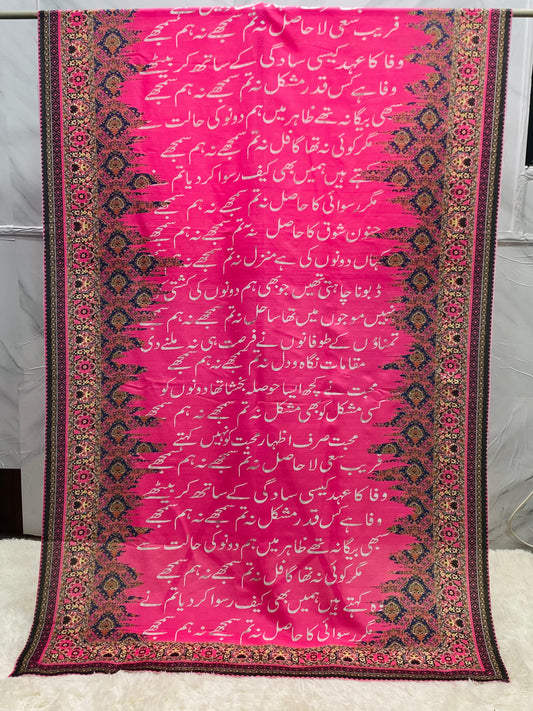 فریب سعی لا حاصل نہ تم سمجھے نہ ہم سمجھے
وفا کا عہد کیسی سادگی کے ساتھ کر بیٹھے
وفا ہے کس قدر مشکل نہ تم سمجھے نہ ہم سمجھے
سبھی بیگانہ تھے ظاہر میں ہم دونو کی حالت سے
مگر کوئی نہ تھا غافل نہ تم سمجھے نہ ہم سمجھے
کہتے ہیں ہمیں بھی کیف رسوا کر دیا تم
مگر رسوائی کا حاصل نہ تم سمجھے نہ ہم سمجھے
جنون شوق کا حاصل نہ تم سمجھے نہ ہم سمجھے
کہاں دونوں کی ہے منزل نہ تم سمجھے نہ ہم سمجھے
ڈبونا چاہتی تھیں جو بھی ہم دونوں کی کشتی
انہیں موجوں میں تھا ساحل نہ تم سمجھے نہ ہم سمجھے
تمناؤں کے طوفانوں نے فرصت ہی نہ ملنے دی
مقامات نگاہ و دل نہ تم سمجھے نہ ہم سمجھے
محبت نے کچھ ایسا حوصلہ بخشا تھا دونوں کو
کسی مشکل کو بھی مشکل نہ تم سمجھے نہ ہم سمجھے
محبت صرف اظہار محبت کو نہیں کہتے
فریب سعی لا حاصل نہ تم سمجھے نہ ہم سمجھے
وفا کا عہد کیسی سادگی کے ساتھ کر بیٹھے
وفا ہے کس قدر مشکل نہ تم سمجھے نہ ہم سمجھے
سبھی بیگانہ تھے ظاہر میں ہم دونو کی حالت سے
مگر کوئی نہ تھا غافل نہ تم سمجھے نہ ہم سمجھے
وہ کہتے ہیں ہمیں بھی کیف رسوا کر دیا تم نے
مگر رسوائی کا حاصل نہ تم سمجھے نہ ہم سمجھے